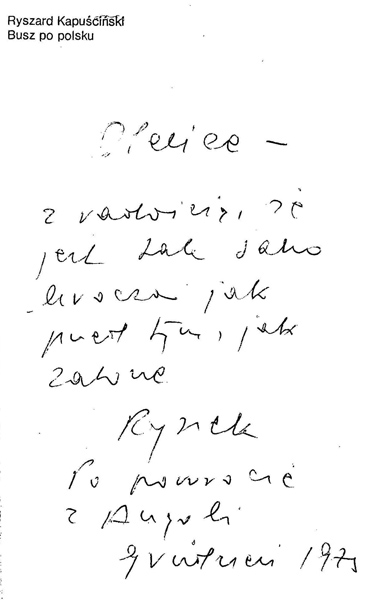 Ryszard Kapuściński
Busz po polsku
–
z radością, że
jest tak samo
urocza jak
przed tym, jak
Rysiek
Po powrocie
z Angoli
grudzień 1975